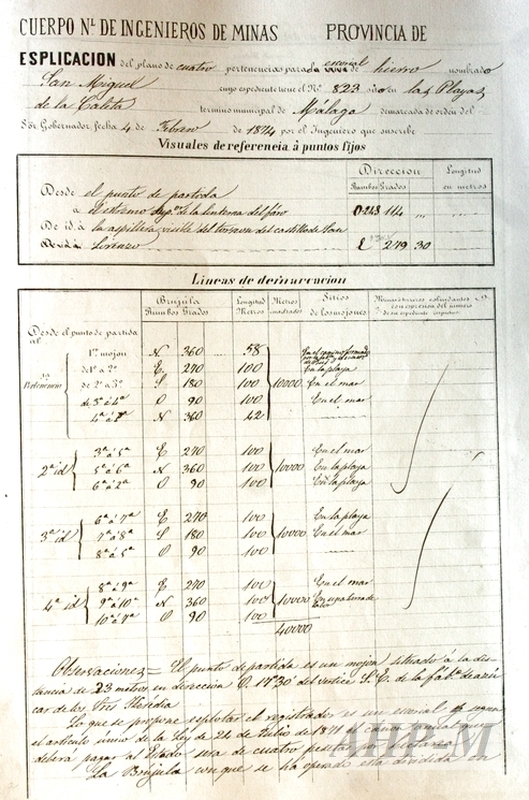 CUERPO Nl. DE INGENIEROS DE MINAS PROVINCIA DE
ESPLICACION del plano de cuatro pertenencias para la escorial de hierro nombrado
San Miguel cuyo espediente tiene el Nº 823 sito en las Playas
de la Caleta termino municipal de Málaga demarcada de orden del
Sór Gobernador, fecha 4 de Febrero de 1874 por el Ingeniero que suscribe
Visuales de referencia à puntos fijos
Direccion Longitud
Rumbos Grados en metros
Desde el punto de partida
á el estremo supor. de la linterna del fáro O 243 114 ... ...
De id. à la aspillera visible del torreon del castillo de San
Lorenzo E 219 30
Lineas de demarcacion
Brujula Longitud Metros Sitios
Rumbos Grados Metros cuadrados de los mojones
Desde el punto de partida
al
1ª Pertenencia
1er mojon N 360 ... 58
de 1º a 2º E 270 100 En la playa
de 2º a 3º S 180 100 10000 En el mar
de 3º á 4º O 90 100 En el mar
4º á 1º N 360 42
2ª id
3º á 5º E 270 100 En el mar
5º á 6º N 360 100 10000 En la playa
6º á 2º O 90 100 En la playa
3ª id
6º á 7º E 270 100 En la playa
7º á 8º S 180 100 10000 En el mar
8º á 5º O 90 100
4ª id
8º á 9º E 270 100 En el mar
9º á 10º N 360 100 10000
10º á 7º O 90 100
40000
Observaciones = El punto de partida es un mojon situado á la dis-
tancia de 23 metros en direccion O. 17º30' del vertice S. E. de la fabª. de azú-
car de los Sres Heredia
Lo que se propone esplotar el registrador es un escorial y segun
el articulo único de la Ley de 24 de Julio de 1871 el canon anual que
deberá pagar al Estado sera de cuatro pesetas por hectarea
La Brújula con que se ha operado esta dividida en
AHP-M